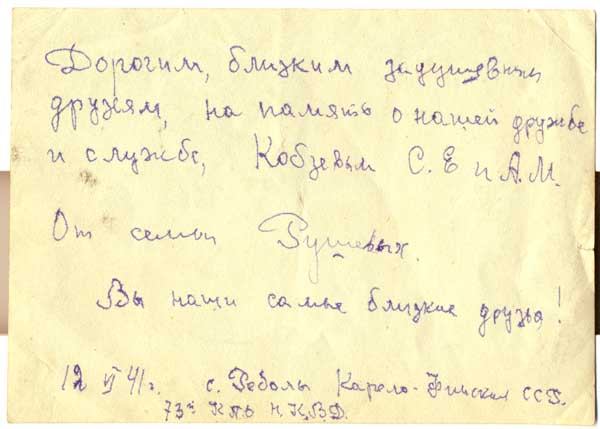 Дорогим, близким задушевным
друзьям, на память о нашей дружбе
и службе, Кобзевым С. Е и А. М.
От семьи Рушевых.
Вы наши самые близкие друзья!
12 VI 41 г. с. Реболы Карело-Финская ССР.
73й К.П.О Н.К.В.Д.